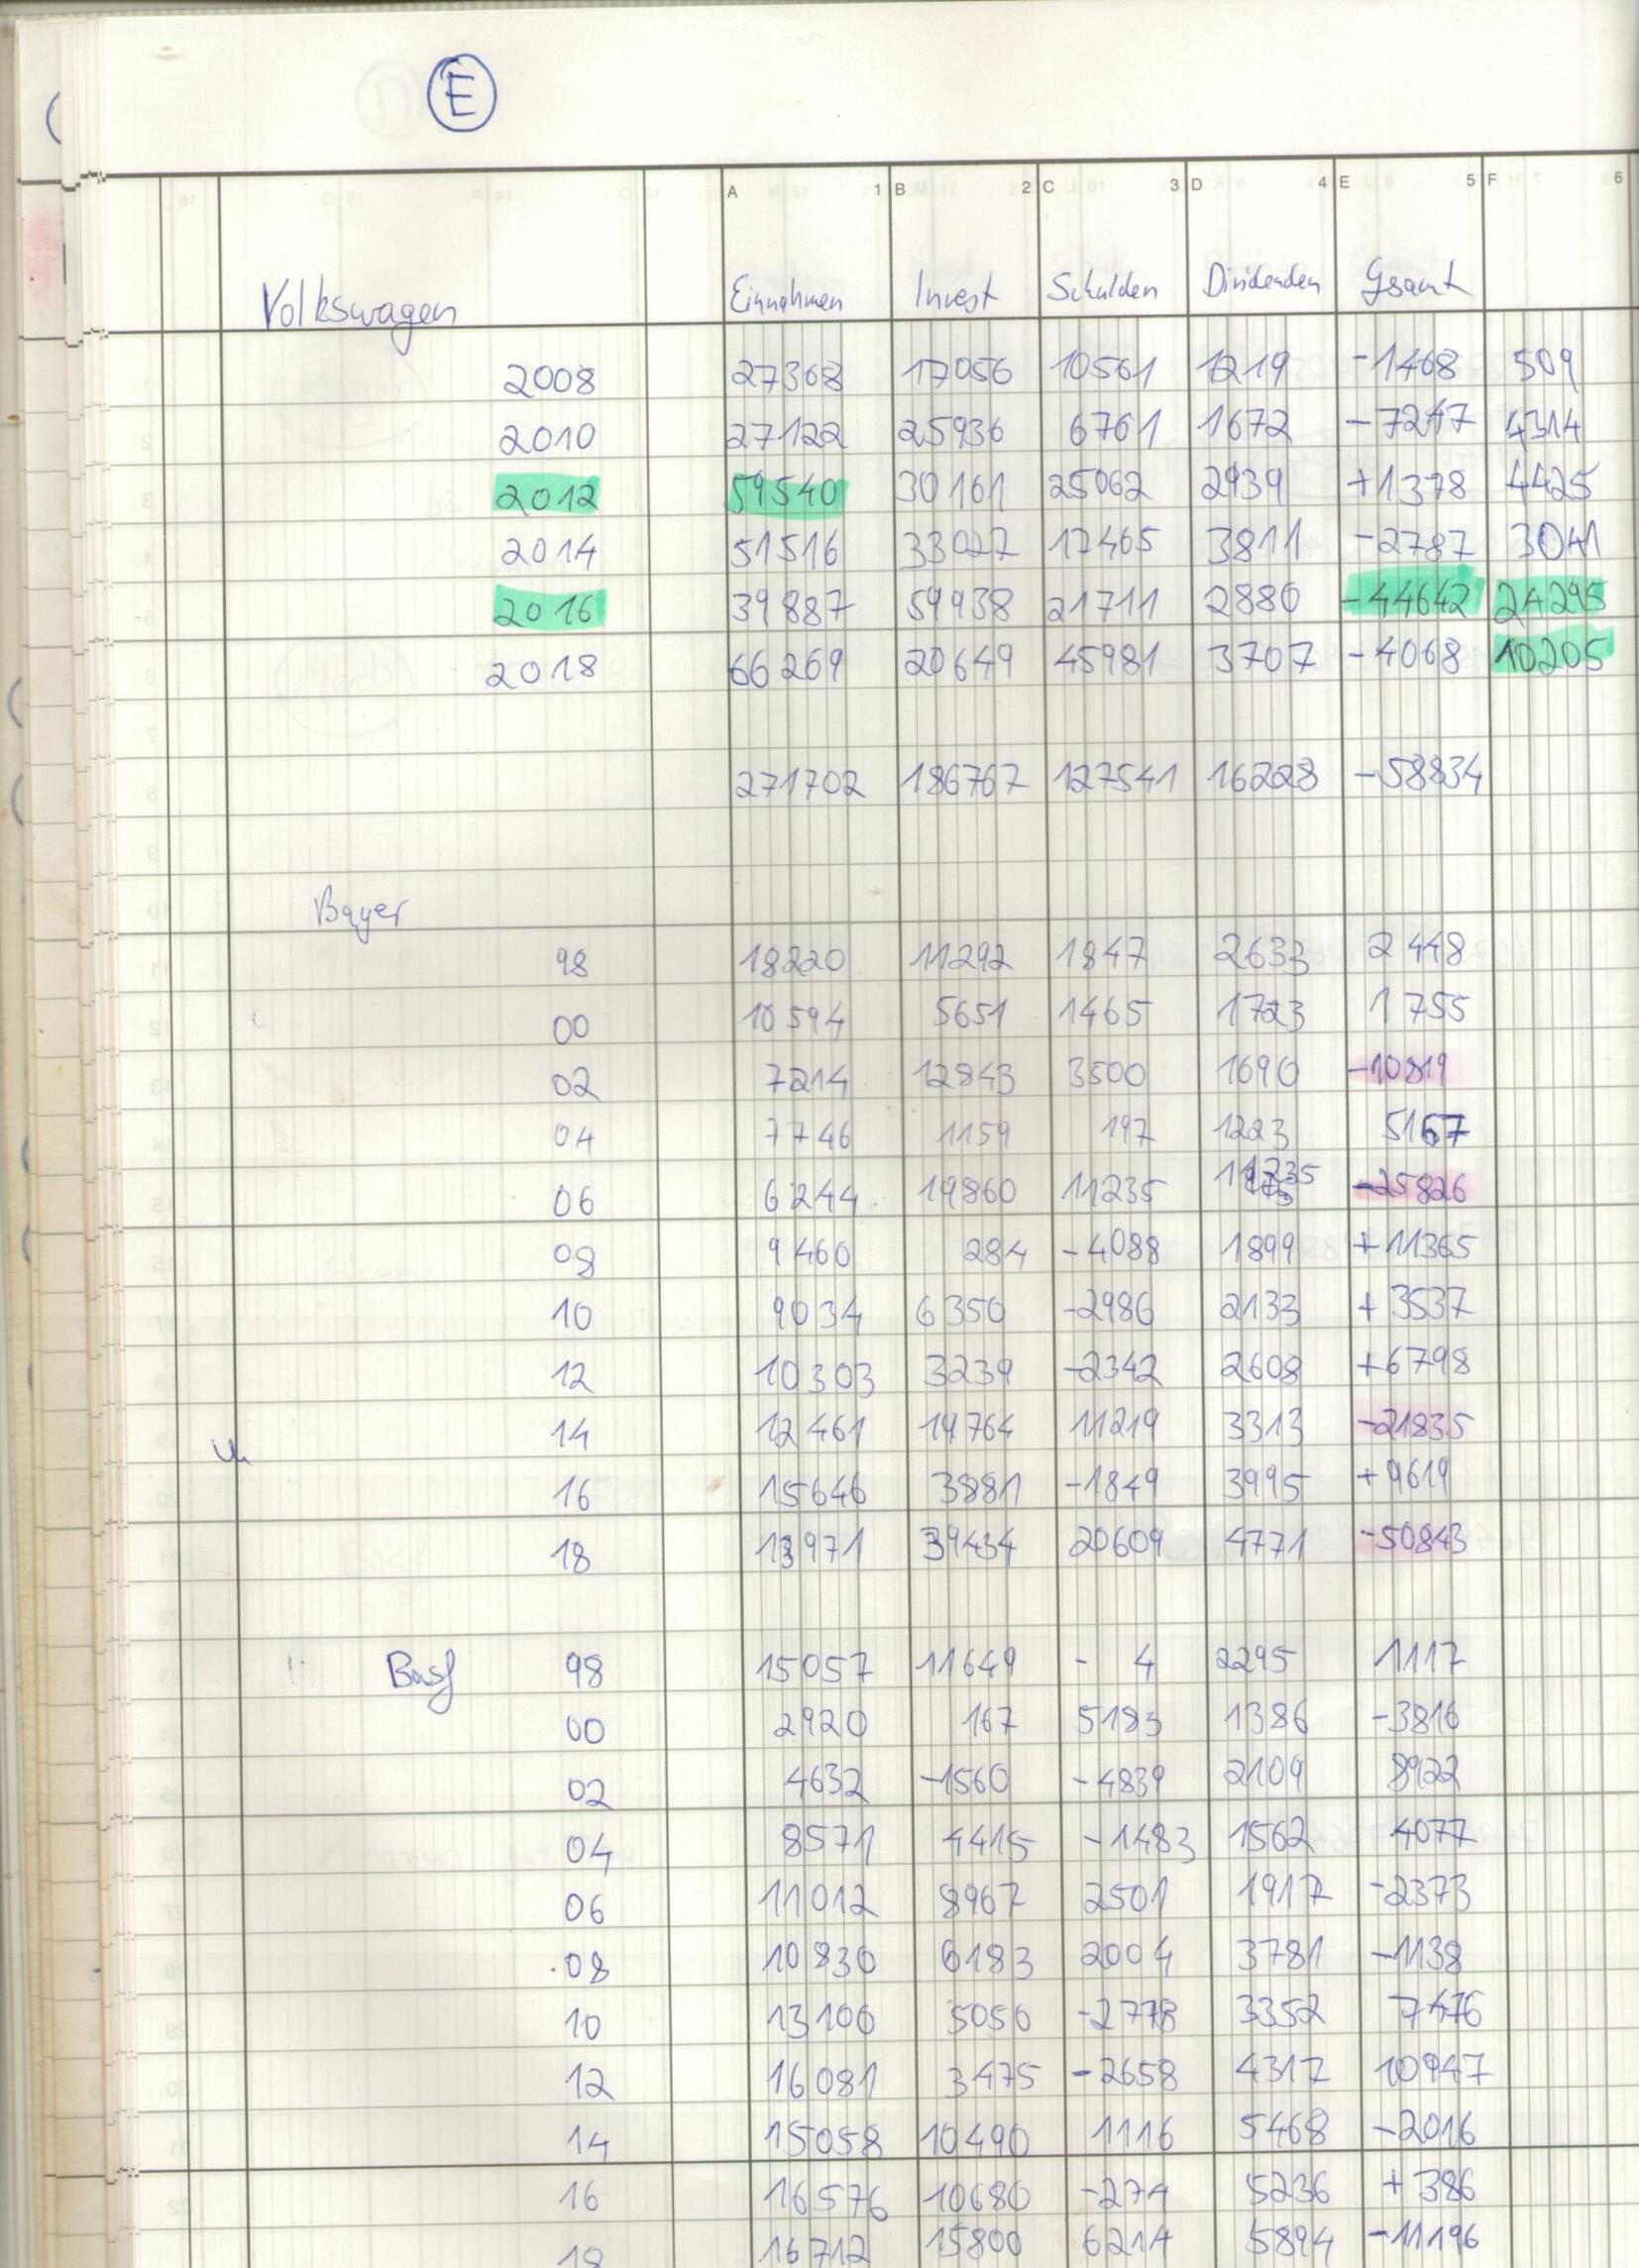 E
A 1 B 2 C 3 D 4 E 5 F 6
Volkswagen Einnahmen Invest Schulden Dividenden Gsamt
2008 27368 17056 10561 1219 -1468 509
2010 27122 25936 6761 1672 -7247 4314
2012 59540 30161 25062 2939 +1378 4425
2014 51516 33027 17465 3811 -2787 3041
2016 39887 59938 21711 2880 -44642 24295
2018 66269 20649 45981 3707 -4068 10205
271702 186767 127541 16228 -58834
Bayer
98 18220 11292 1847 2633 2448
00 10594 5651 1465 1723 1755
02 7214 12843 3500 1690 -10819
04 7746 1159 197 1223 5167
06 6244 19860 11235 -25826
08 9460 284 -4088 1899 +11365
10 9034 6350 -2986 2133 +3537
12 10303 3239 -2342 2608 +6798
14 12461 19764 11219 3313 -21835
16 15646 3881 -1849 3995 +9619
18 13971 39434 20609 4771 -50843
Basf 98 15057 11649 - 4 2295 1117
00 2920 167 5183 1386 -3816
02 4632 -1560 -4839 2109 8922
04 8571 4415 -1483 1562 4077
06 11012 8967 2501 1917 -2373
08 10830 6183 2004 3781 -1138
10 13100 5050 -2778 3352 7476
12 16081 3475 -2658 4317 10947
14 15058 10490 1116 5468 -2016
16 16576 10680 -274 5236 +386
18 16712 15800 6214 5894 -11196